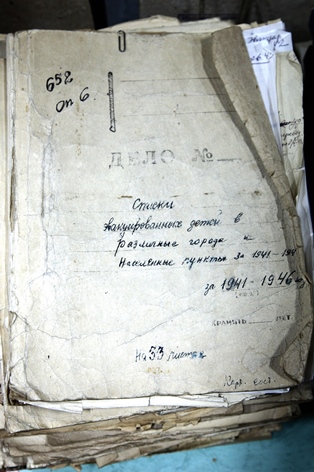 652
оп 6.
ДЕЛО №
Списки
эвакуированных детей в
различные города и
населённые пункты за 1941-194
за 1941-1946
На 33 листах